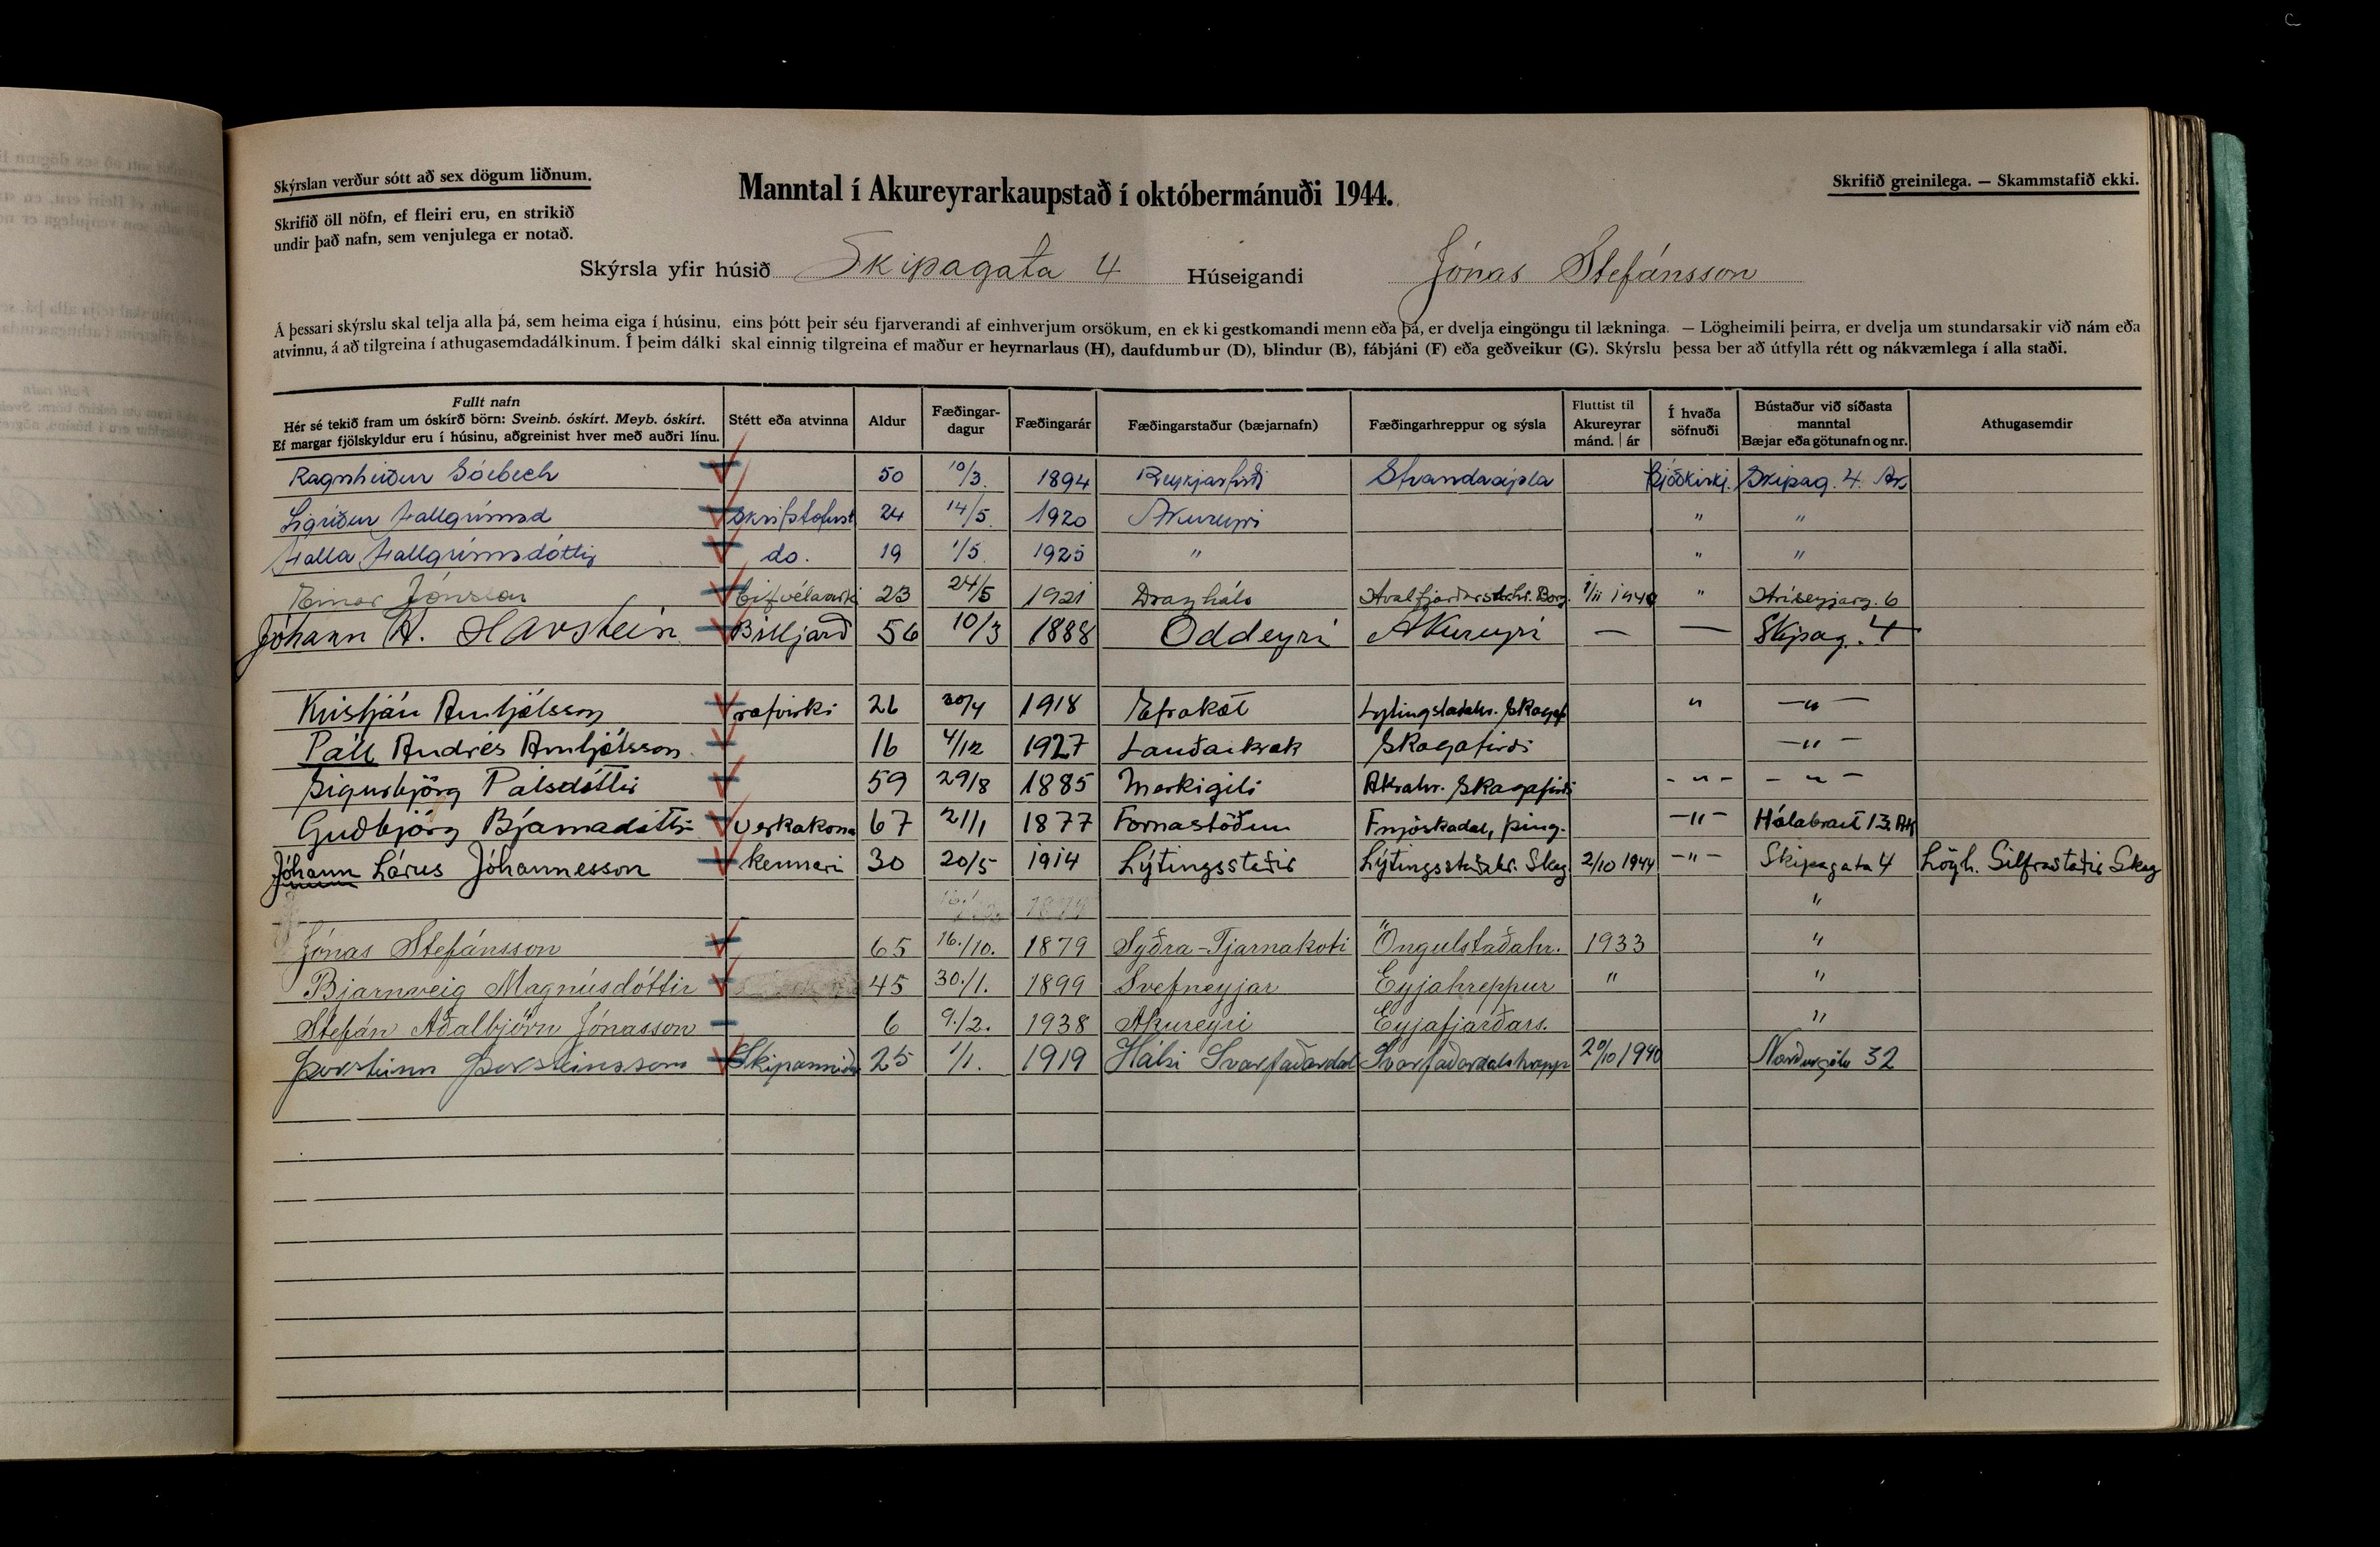 Skýrslan verður sótt að sex dögum liðnum.
Skrifið öll nöfn, ef fleiri eru, en strikið
undir það nafn, sem venjulega er notað.
Manntal í Akureyrarkaupstað í októbermánuði 1944.
Skrifið greinilega. — Skammstafið ekki.
Skýrsla yfir húsið Skipagata 4 Húseigandi Jónas Stefánsson
Á þessari skýrslu skal telja alla þá, sem heima eiga í húsinu, eins þótt þeir séu fjarverandi af einhverjum orsökum, en ekki gestkomandi menn eða þá, er dvelja eingöngu til lækninga. — Lögheimili þeirra, er dvelja um stundarsakir við nám eða
atvinnu, á að tilgreina í athugasemdadálkinum. Í þeim dálki skal einnig tilgreina ef maður er heyrnarlaus (H), daufdumbur (D), blindur (B), fábjáni (F) eða geðveikur (G). Skýrslu þessa ber að útfylla rétt og nákvæmlega í alla staði.
Fullt nafn
Hér sé tekið fram um óskírð börn: Sveinb. óskírt. Meyb. óskírt.
Ef margar fjölskyldur eru í húsinu, aðgreinist hver með auðri línu.
Stétt eða atvinna
Aldur
Fæðingar-
dagur
Fæðingarár
Fæðingarstaður (bæjarnafn)
Fæðingarhreppur og sýsla
Fluttist til
Akureyrar
mánd. | ár
Í hvaða
söfnuði
Bústaður við síðasta
manntal
Bæjar eða götunafn og nr.
Athugasemdir
Ragnheiður Sóebech 50 10/3. 1894 Reykjarfirði Strandasýsla Þjóðkirkj. Skipag. 4. Ak
Sigríður Hallgrímsd skrifstofust 24 14/5. 1920 Akureyri " "
Halla Hallgrímsdóttir do. 19 1/5. 1925 " " "
Einar Jónsson Bifvélavirki 23 24/5 1921 Draghals 1/11 1940 " Hríseyjarg. 6
Jóhann H. Havsteen Billjard 56 10/3 1888 Oddeyri Akureyri — — Skipag. 4
Kristján Arnljótsson rafvirki 26 1918 Lýtingsstaðahr. Skagaf " — " —
Páll Andrés Arnljótsson 16 4/12 1927 Sauðárkrók Skagafirði — " —
Sigurbjörg Pálsdóttir 59 29/8 1885 Merkigili Akrahr. Skagafirði - " - - " -
Guðbjörg Bjarnadóttir verkakona 67 21/1 1877 Fornastöðum Fnjóskadal, þing. — " — Hólabraut 13. Ak
Jóhann Lárus Jóhannesson kennari 30 20/5 1914 Lýtingsstaðir Lýtingsstaðahr. Skag 2/10 1944 — " — Skipagata 4 Lögh. Silfrastaðir Skag
"
Jónas Stefánsson 65 16./10. 1879 Syðra-Tjarnakoti Öngulstaðahr. 1933 "
Bjarnveig Magnúsdóttir 45 30./1. 1899 Svefneyjar Eyjahreppur " "
Stefán Aðalbjörn Jónasson 6 9./2. 1938 Akureyri Eyjafjarðars. "
Þorsteinn Þorsteinsson Skipasmiður 25 1/1. 1919 Hálsi Svarfaðardal Svarfaðardalshrepp 20/10 1940 Norðurgötu 32